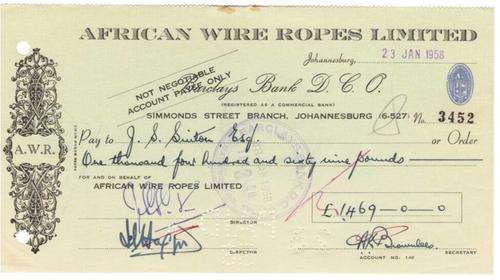 AFRICAN WIRE ROPES LIMITED
Johannesburg, 23 JAN 1958
NOT NEGOTIABLE
ACCOUNT PAYEE ONLY
Barclays Bank D.C.O.
(REGISTERED AS A COMMERCIAL BANK)
SIMMONDS STREET BRANCH, JOHANNESBURG (6-527) No. 3452
Pay to J. S. Sinton Esq. or Order
One thousand four hundred and sixty nine pounds
A.W.R.
FOR AND ON BEHALF OF
AFRICAN WIRE ROPES LIMITED
£1,469-0-0
DIRECTOR
SECRETARY
ACCOUNT NO. 140